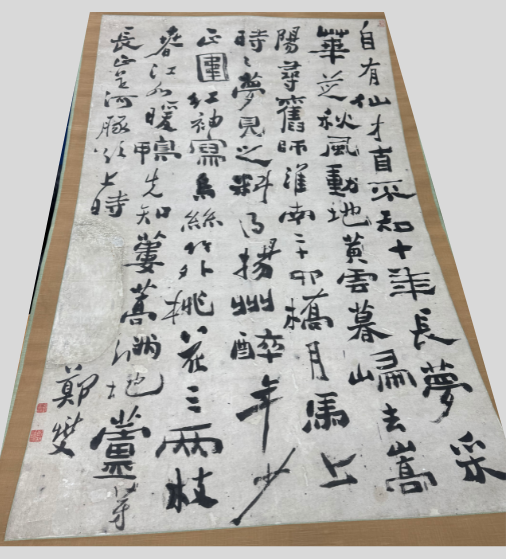 自有仙才直不知十年長夢采
華芝秋風動地黃雲暮歸去嵩
陽尋舊師淮南二十四橋月馬上
時〻夢見之料得揚州醉年少
正圍紅袖寫烏絲竹外桃花三兩枝
春江水暖鴨先知蔞蒿滿地蘆芽
長正是河豚欲上時
鄭燮